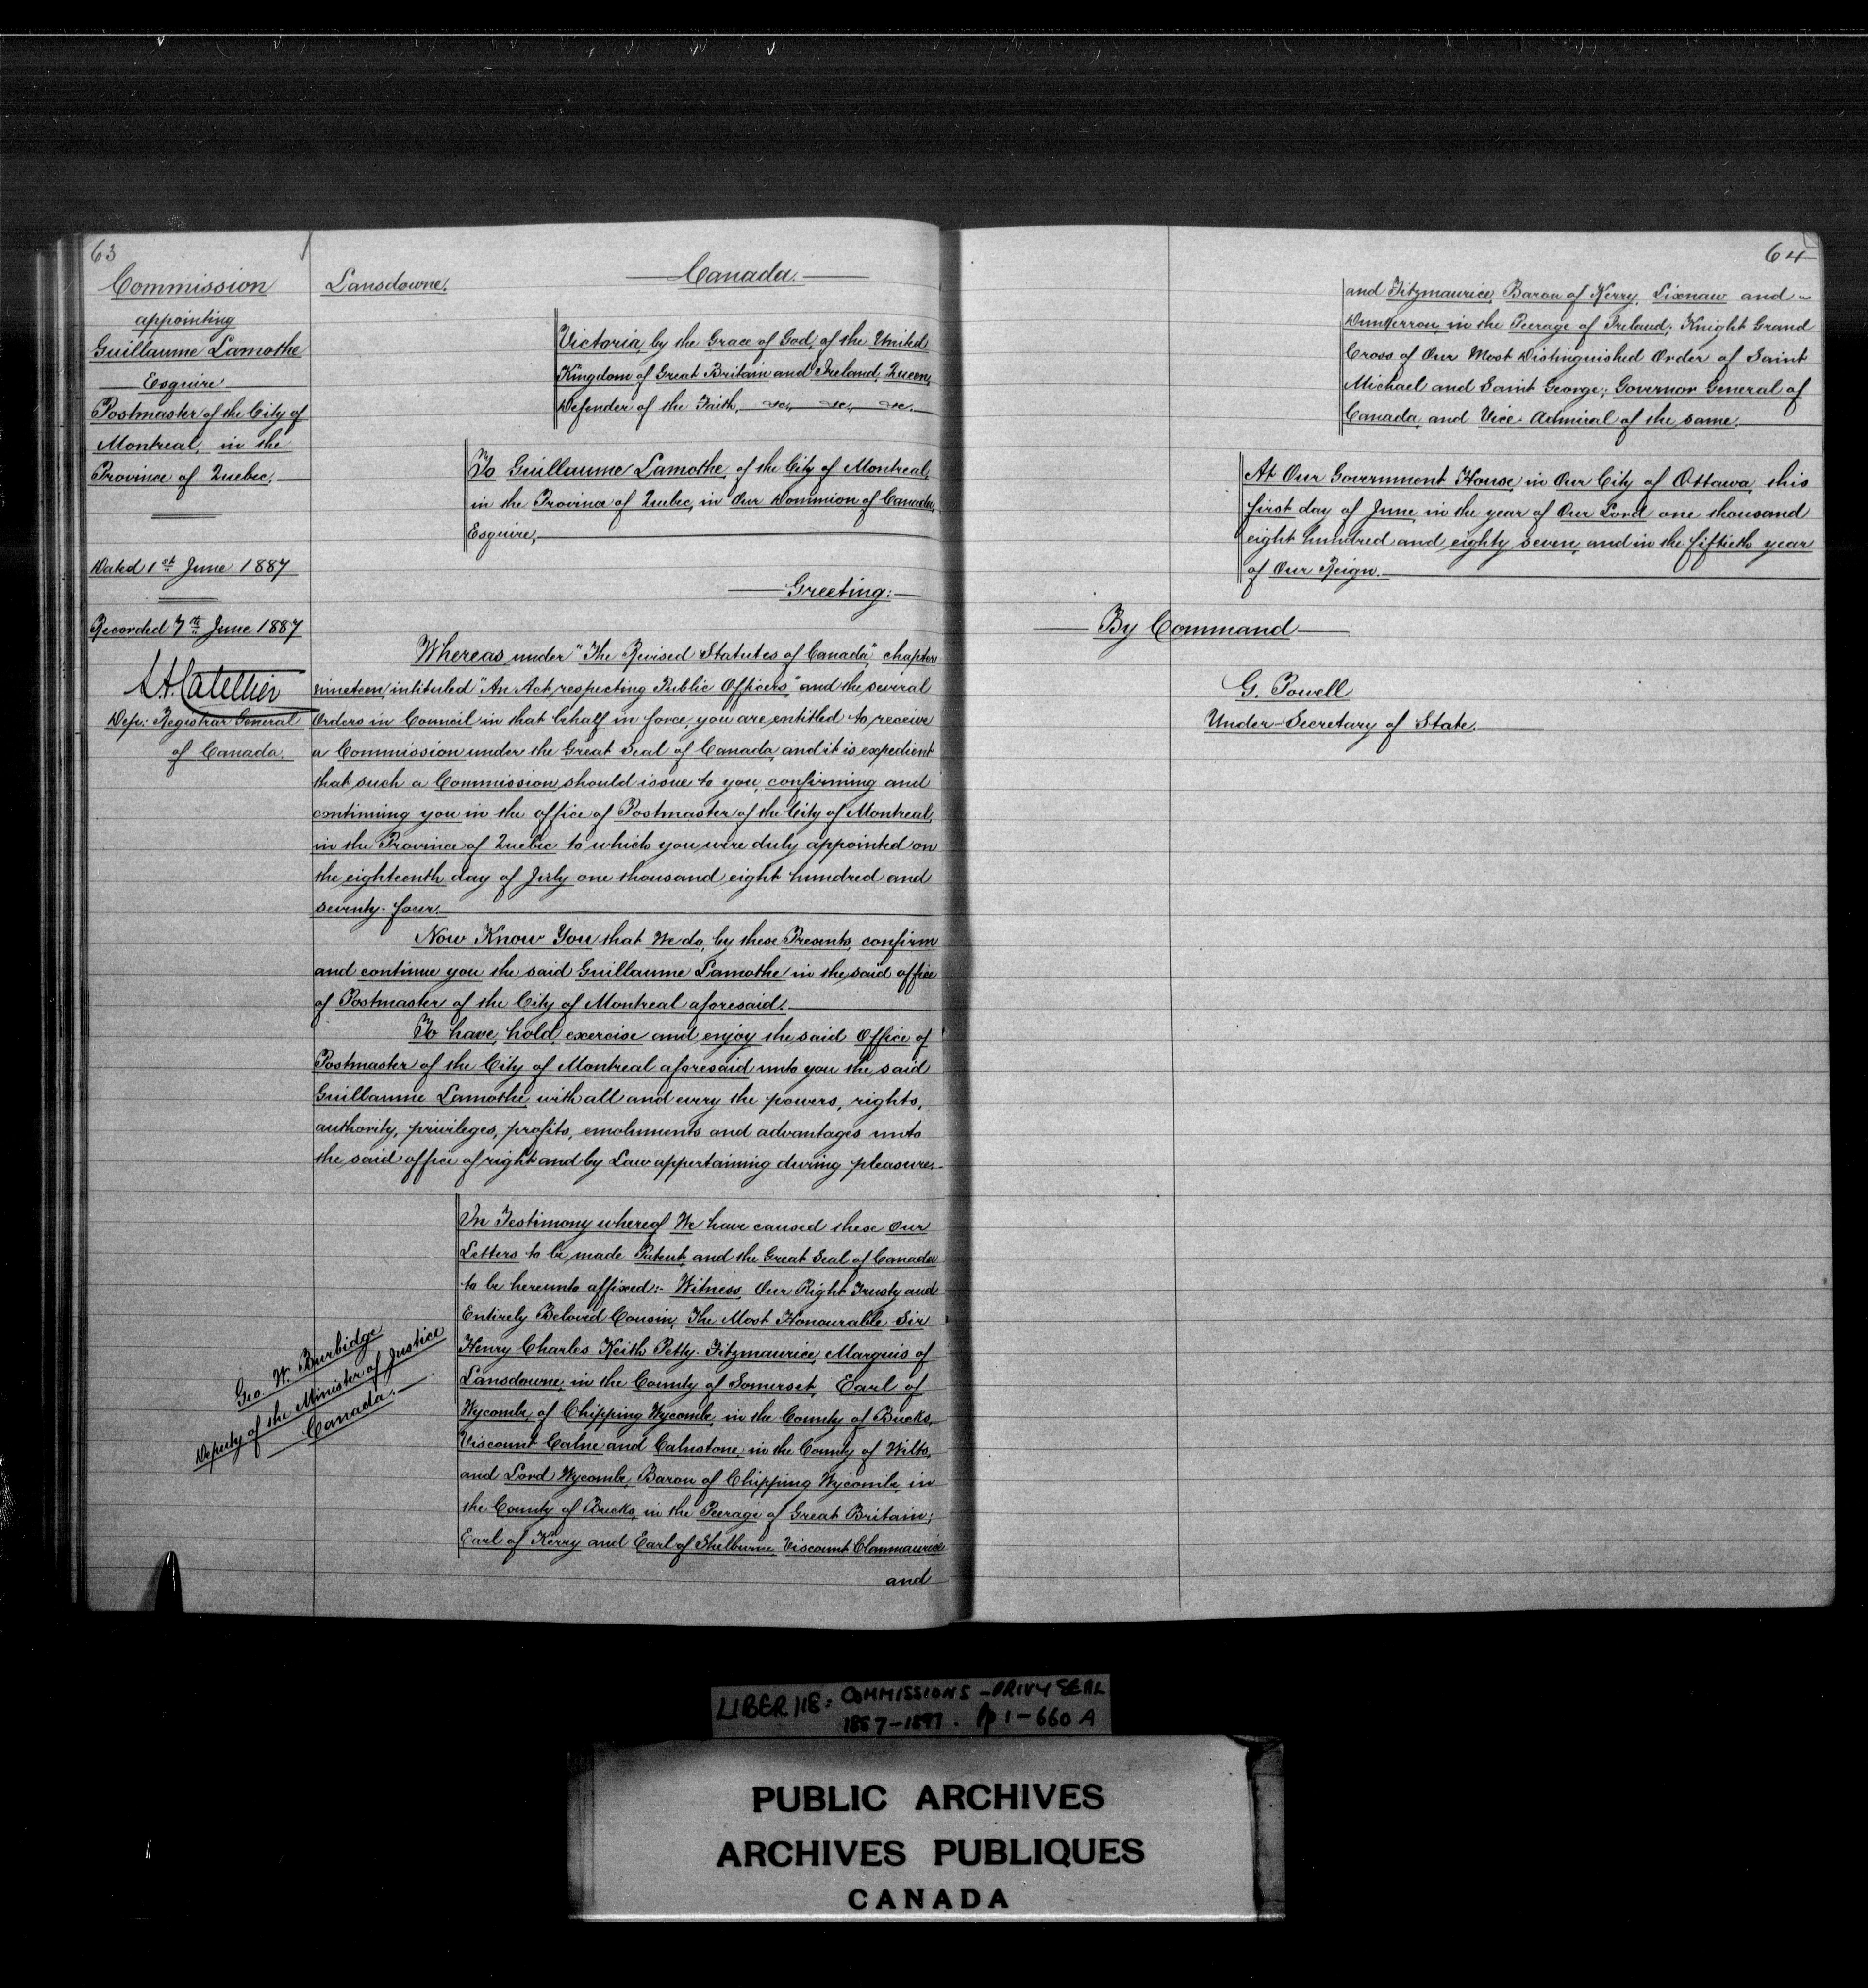 63
Commission
appointing
Guillaume Lamothe
Esquire
Postmaster of the City of
Montreal, in the
Province of Quebec.
Dated 1st June 1887
Recorded 7th June 1887
L. A. Catellier
Depy. Registrar General
of Canada.
Lansdowne.
Canada.
Victoria, by the Grace of God, of the United
Kingdom of Great Britain and Ireland, Queen,
Defender of the Faith, &c., &c., &c.
To Guillaume Lamothe, of the City of Montreal,
in the Province of Quebec, in Our Dominion of Canada,
Esquire,
Greeting:
Whereas under "The Revised Statutes of Canada", chapter
nineteen, intituled "An Act respecting Public Officers," and the several
Orders in Council in that behalf in force, you are entitled to receive
a Commission under the Great Seal of Canada, and it is expedient
that such a Commission should issue to you, confirming and
continuing you in the office of Postmaster of the City of Montreal,
in the Province of Quebec to which you were duly appointed on
the eighteenth day of July one thousand eight hundred and
seventy-four.
Now Know You that We do, by these Presents, confirm
and continue you the said Guillaume Lamothe in the said office
of Postmaster of the City of Montreal aforesaid.
To have, hold, exercise and enjoy the said Office of
Postmaster of the City of Montreal aforesaid unto you the said
Guillaume Lamothe, with all and every the powers, rights,
authority, privileges, profits, emoluments and advantages unto
the said office of right and by Law appertaining during pleasure.
In Testimony whereof We have caused these Our
Letters to be made Patent, and the Great Seal of Canada
to be hereunto affixed:- Witness, Our Right Trusty and
Entirely Beloved Cousin, The Most Honourable Sir
Henry Charles Keith Petty-Fitzmaurice, Marquis of
Lansdowne, in the County of Somerset, Earl of
Wycombe, of Chipping Wycombe, in the County of Bucks,
Viscount Calne and Calnstone, in the County of Wilts,
and Lord Wycombe, Baron of Chipping Wycombe, in
the County of Bucks, in the Peerage of Great Britain;
Earl of Kerry and Earl of Shelburne, Viscount Clanmaurice
and
Geo. W. Burbidge
Deputy of the Minister of Justice
Canada.
64
and Fitzmaurice, Baron of Kerry, Lixnaw and
Dunkerron, in the Peerage of Ireland; Knight Grand
Cross of Our Most Distinguished Order of Saint
Michael and Saint George; Governor General of
Canada, and Vice-Admiral of the same.
At Our Government House, in Our City of Ottawa, this
first day of June, in the year of Our Lord one thousand
eight hundred and eighty seven, and in the fiftieth year
of Our Reign.
By Command
G. Powell
Under-Secretary of State.
LIBER 118: COMMISSIONS - PRIVY SEAL
1887-1897. pp 1-660 A
PUBLIC ARCHIVES
ARCHIVES PUBLIQUES
CANADA